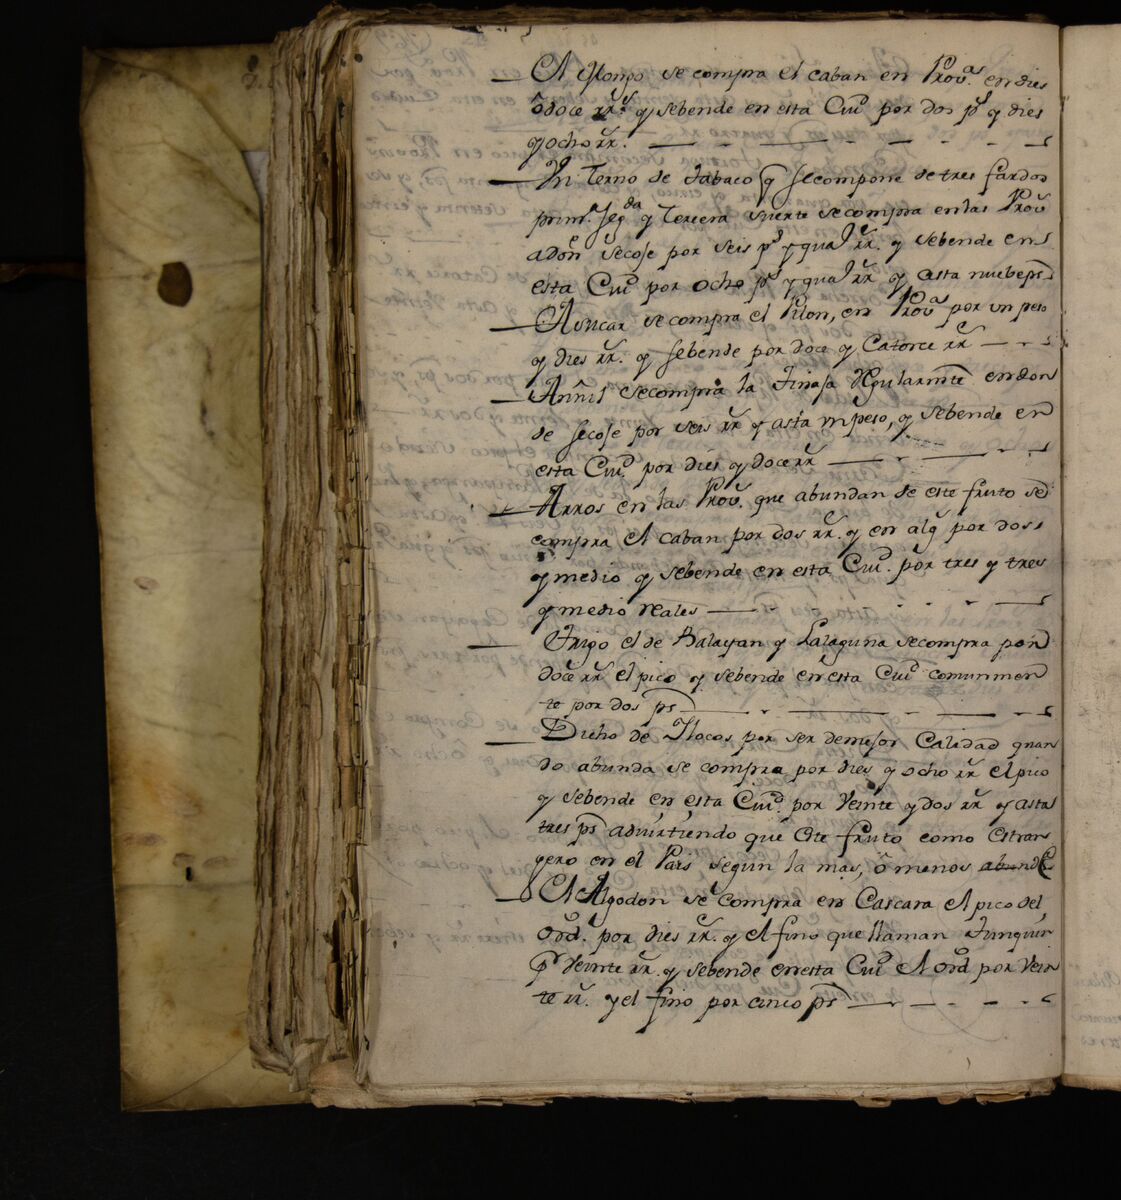 El Mongo se compra el caban en Prov.ª en dies
ô doce rr.s y se bende en esta Ciu.d por dos p.s y dies
y ocho rr.
Un Terno de Tabaco q se compone de tres fardos
prim.ª seg.da y Tercera suerte se compra en las Prov.
adon se coje por seis p.s y qua rr. y se bende en
esta Ciu.d por ocho p.s y qua rr y asta nuebe ps
Asucar se compra el Pilon, en Prov.ª por un peso
y dies rr. y se bende por doce y Catorce rr
Annil se compra la Tinaja Regularmte en don
de se coje por seis rr y asta un peso, y se bende en
esta Ciu.d por dies y doce rr
Arros en las Prov. que abundan de este fruto se
compra el caban por dos rr. y en alg por dos
y medio y se bende en esta Ciu.d por tres y tres
y medio reales
Trigo el de Balayan y Lalaguna se compra por
doce rr el pico y se bende en esta Ciu.d comunmen
te por dos ps
Dicho de Ilocos por ser de mejor Calidad quan
do abunda se compra por dies y ocho rr el pico
y se bende en esta Ciu.d por Veinte y dos rr y asta
tres ps advirtiendo que este fruto como estran
gero en el Pais segun la mas, ô menos abund
El Algodon se compra en Cascara el pico del
Ord.º por dies rr. y el fino que llaman
p Veinte rr. y se bende en esta Ciu.d el Ord.º por Vein
te rr. y el fino por cinco ps